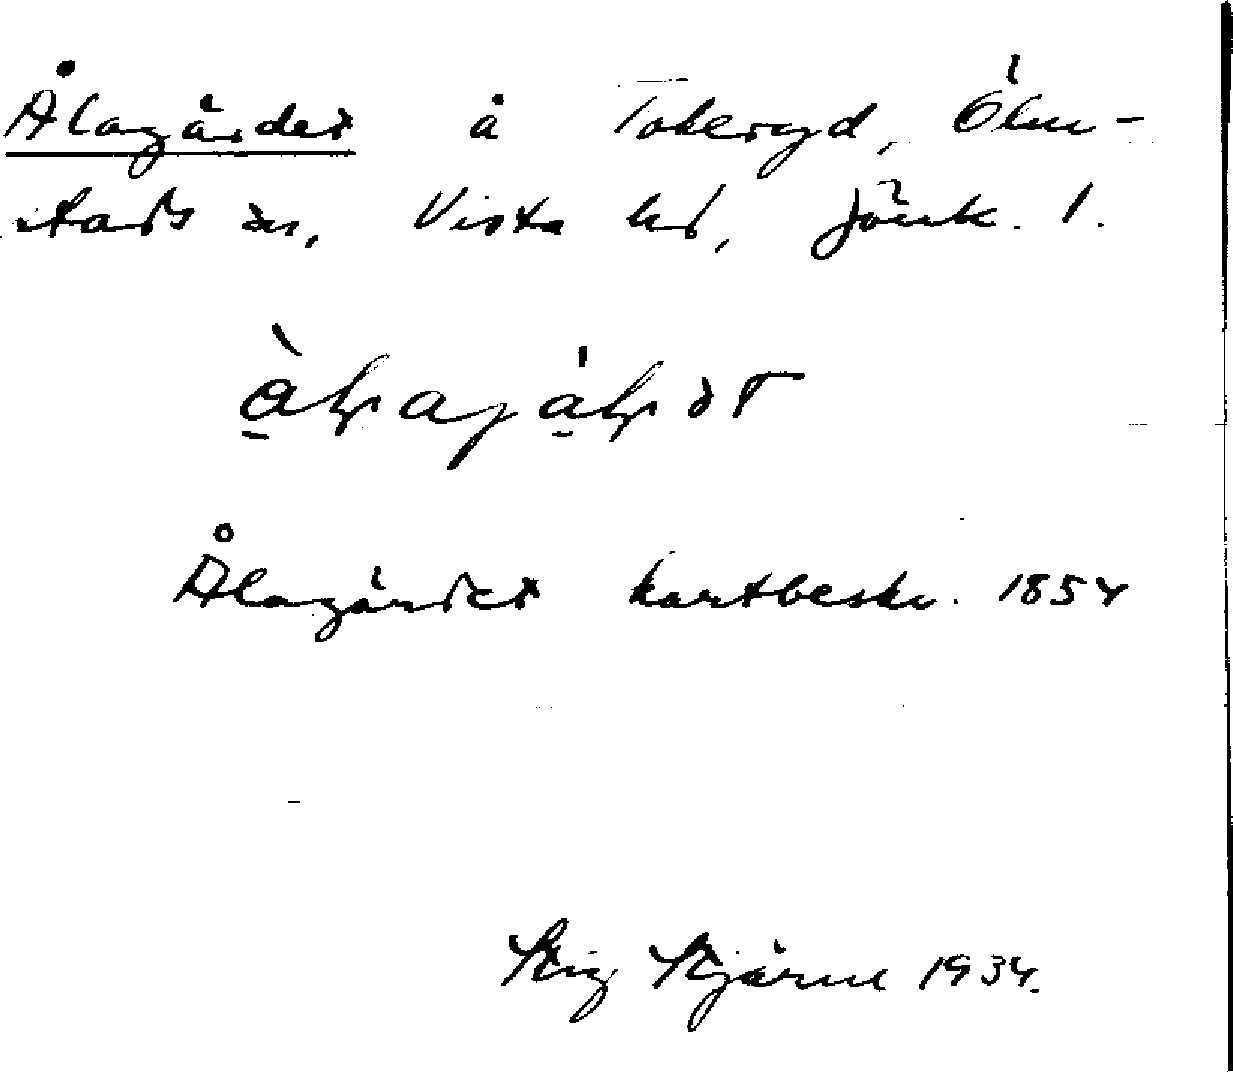 Ålagärdet å Tokeryd, Ölm-
stads sn, Vista hd, Jönk. l.
Ålagärdet kartbeskr. 1854
Stig Stjärne 1934.